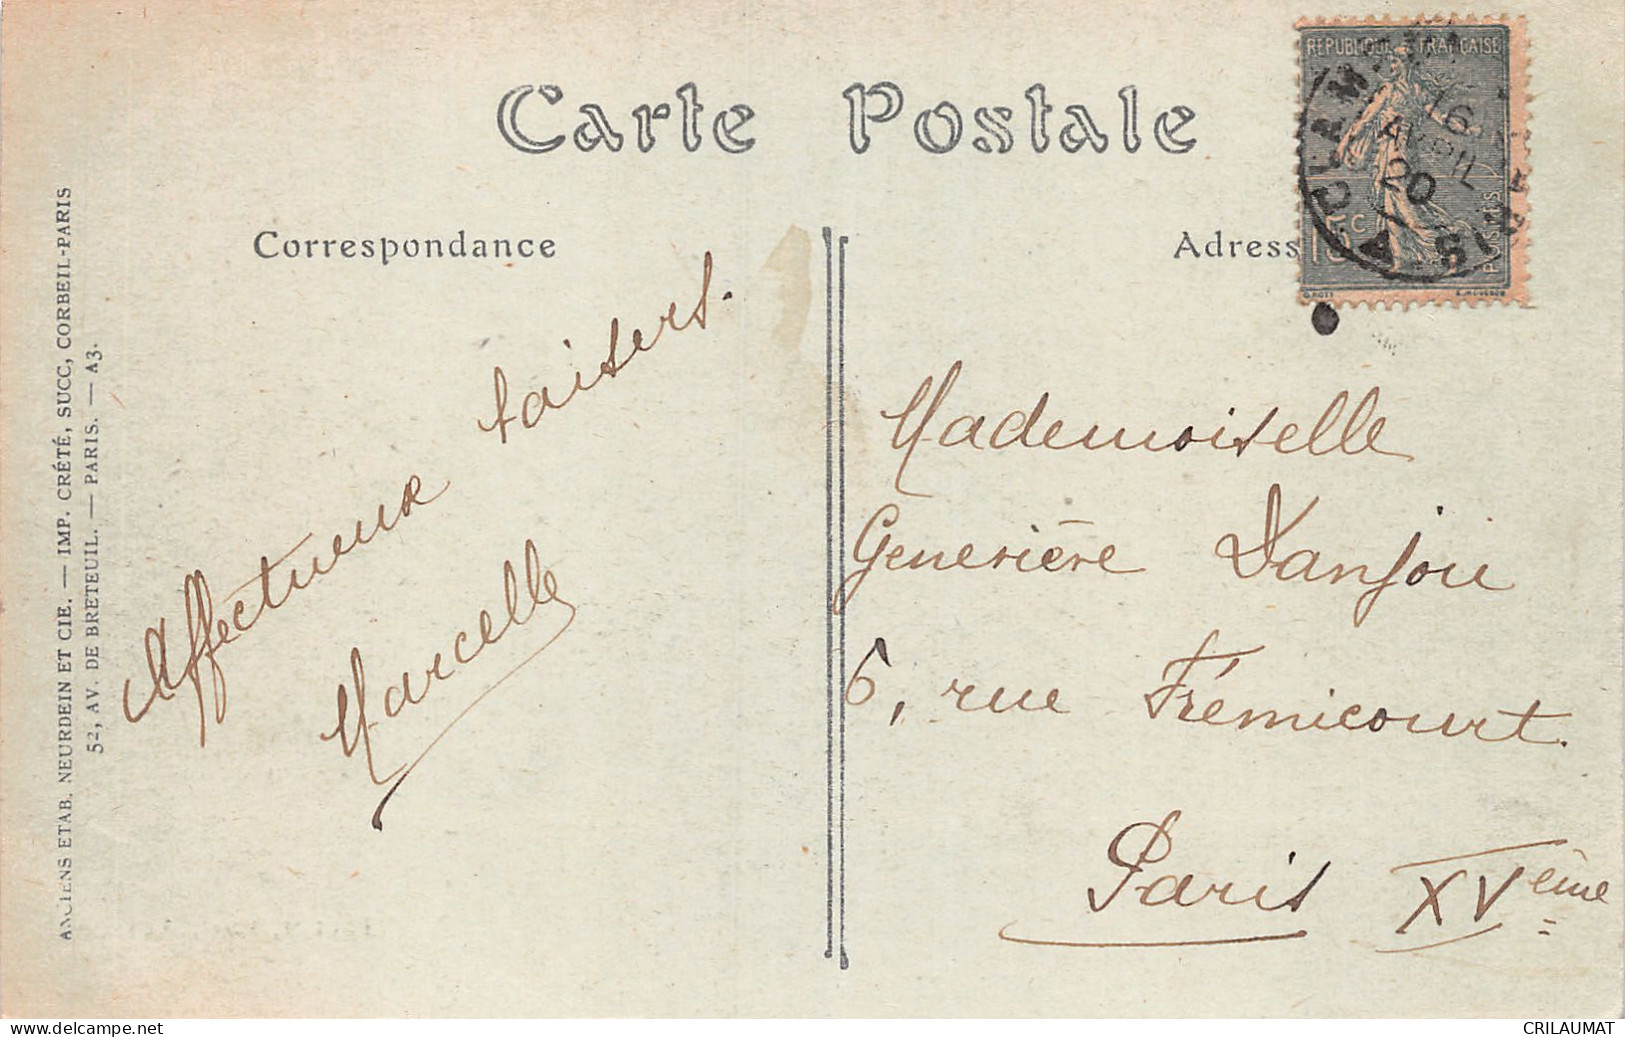 Carte Postale
Correspondance
Adress
ANCIENS ETAB. NEURDEIN ET CIE. — IMP. CRÉTÉ, SUCC, CORBEIL-PARIS
52, AV. DE BRETEUIL. — PARIS. — A3.
REPUBLIQUE FRANCAISE
15c
POSTES
16
AVRIL
20
Affectueux baisers.
Marcelle
Mademoiselle
Geneviève Danjou
6, rue Frémicourt.
Paris XVème
CRILAUMAT